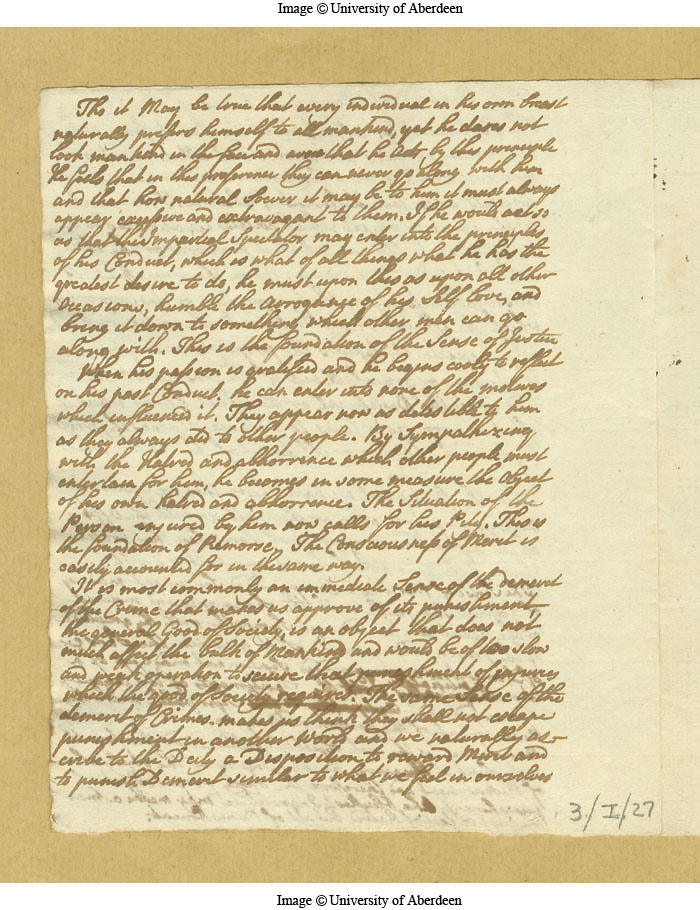 Image © University of Aberdeen
Tho it May be true that every individual in his own breast
naturally prefers himself to all mankind, yet he dares not
look mankind in the face and avow that he Acts by this principle
He feels that in this preference they can never go along with him
and that how natural Soever it may be to him it must always
appear excessive and extravagant to them. If he would act so
as that the Impartial Spectator may enter into the principles
of his Conduct, which is what of all things what he has the
greatest desire to do, he must upon this as upon all other
Occasions, humble the Arrogance of his Self love, and
bring it down to something which other men can go
along with. This is the foundation of the Sense of Justice
When his passion is gratified and he begins cooly to reflect
on his past Conduct, he can enter into none of the motives
which influenced it. They appear now as detestible to him
as they always did to other people. By Sympathizing
with the Hatred and abhorrence which other people must
entertain for him, he becomes in some measure the Object
of his own hatred and abhorrence. The Situation of the
Person injured by him now calls for his Pity. This is
the foundation of Remorse. The Consciousness of Merit is
easily accounted for in the same way.
It is most commonly an immediate Sense of the demerit
of the Crime that makes us approve of its punishment,
the general Good of Society is an object that does not
much affect the bulk of Mankind and would be of too slow
and weak operation to secure that punishment of injuries
which the good of Society requires. The same Sense of the
demerit of Crimes makes us think they shall not escape
punishment in another World and we naturally as-
cribe to the Deity a Disposition to reward Merit and
to punish Demerit similar to what we feel in ourselves
3/I/27
Image © University of Aberdeen